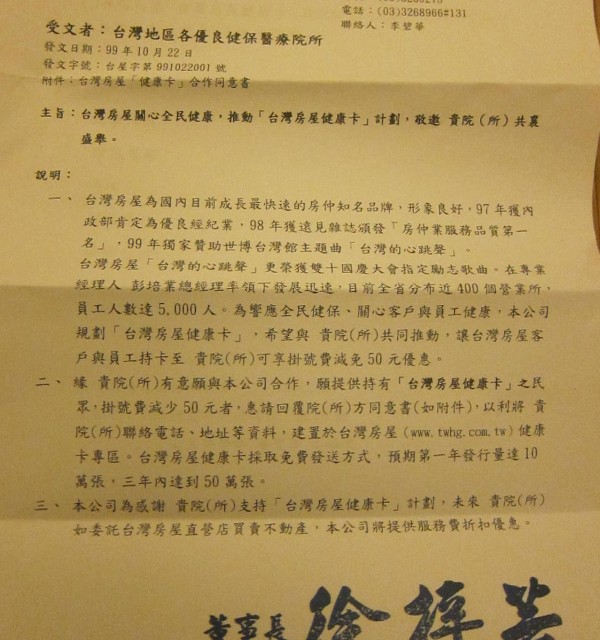 電話：(03)3268966#131
聯絡人：李瑩華
受文者：台灣地區各優良健保醫療院所
發文日期：99年10月22日
發文字號：台屋字第991022001號
附件：台灣房屋「健康卡」合作同意書
主旨：台灣房屋關心全民健康，推動「台灣房屋健康卡」計劃，敬邀 貴院（所）共襄
盛舉。
說明：
一、 台灣房屋為國內目前成長最快速的房仲知名品牌，形象良好，97年獲內
政部肯定為優良經紀業，98年獲遠見雜誌頒發「房仲業服務品質第一
名」，99年獨家贊助世博台灣館主題曲「台灣的心跳聲」。
台灣房屋「台灣的心跳聲」更榮獲雙十國慶大會指定勵志歌曲。在專業
經理人 彭培業總經理率領下發展迅速，目前全省分布近400個營業所，
員工人數達5,000人。為響應全民健保、關心客戶與員工健康，本公司
規劃「台灣房屋健康卡」，希望與 貴院(所)共同推動，讓台灣房屋客
戶與員工持卡至 貴院(所)可享掛號費減免50元優惠。
二、 緣 貴院(所)有意願與本公司合作，願提供持有「台灣房屋健康卡」之民
眾，掛號費減少50元者，惠請回覆院(所)方同意書(如附件)，以利將 貴
院(所)聯絡電話、地址等資料，建置於台灣房屋(www.twhg.com.tw)健康
卡專區。台灣房屋健康卡採取免費發送方式，預期第一年發行量達10
萬張，三年內達到50萬張。
三、 本公司為感謝 貴院(所)支持「台灣房屋健康卡」計劃，未來 貴院(所)
如委託台灣房屋直營店買賣不動產，本公司將提供服務費折扣優惠。
董事長